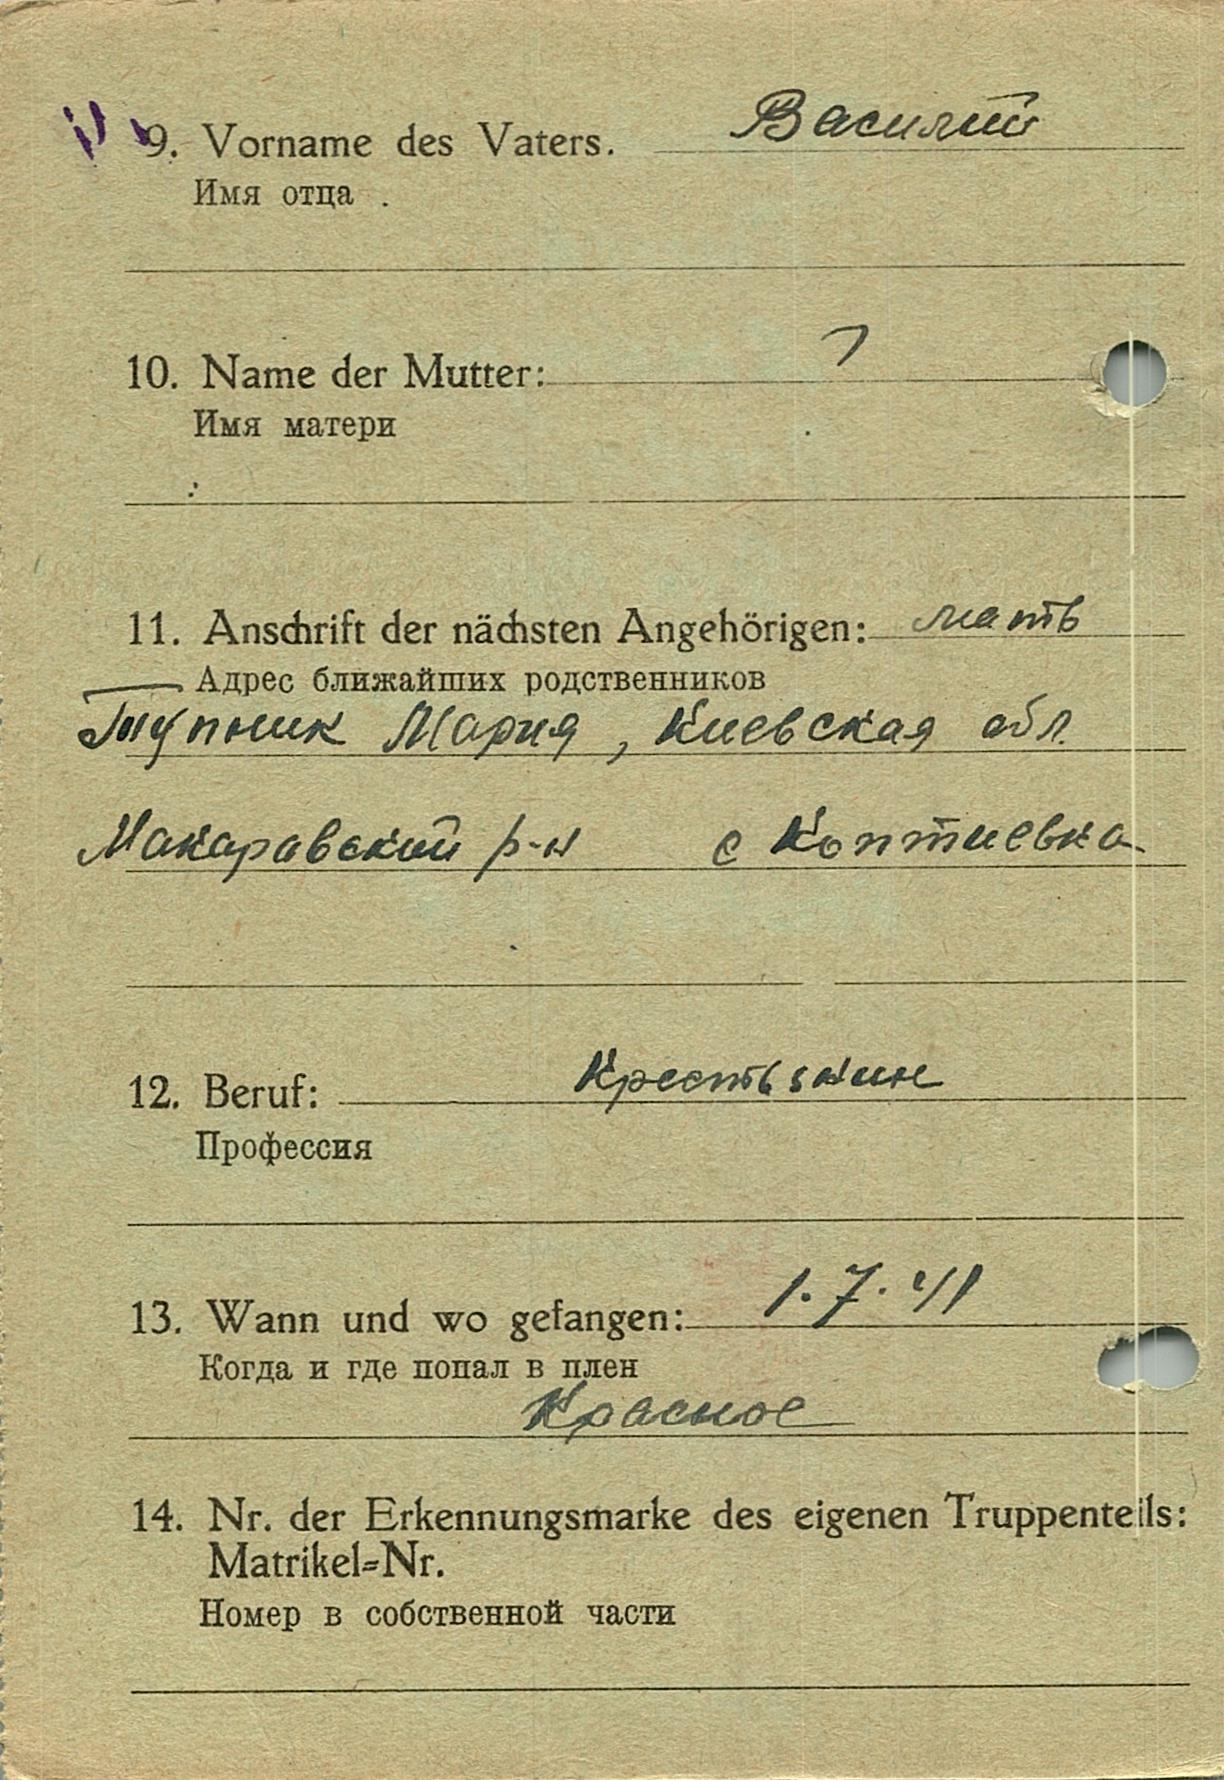 9. Vorname des Vaters. Василий
Имя отца
10. Name der Mutter:
Имя матери
11. Anschrift der nächsten Angehörigen: мать
Адрес ближайших родственников
Тупник Мария, Киевская обл.
Макаравский р-н с Коптиевка
12. Beruf: Крестьянин
Профессия
13. Wann und wo gefangen: 1.7.41
Когда и где попал в плен
Красное
14. Nr. der Erkennungsmarke des eigenen Truppenteils:
Matrikel=Nr.
Номер в собственной части